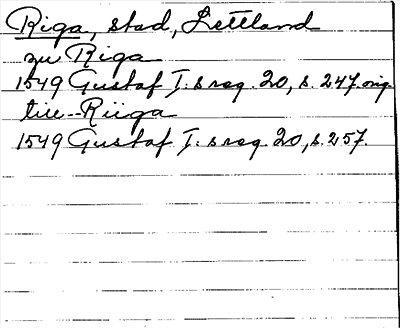 Riga, stad, Lettland
zu Riga
1549 Gustaf I:s reg. 20, s. 247. orig.
till--Riiga
1549 Gustaf I:s reg. 20, s. 257.